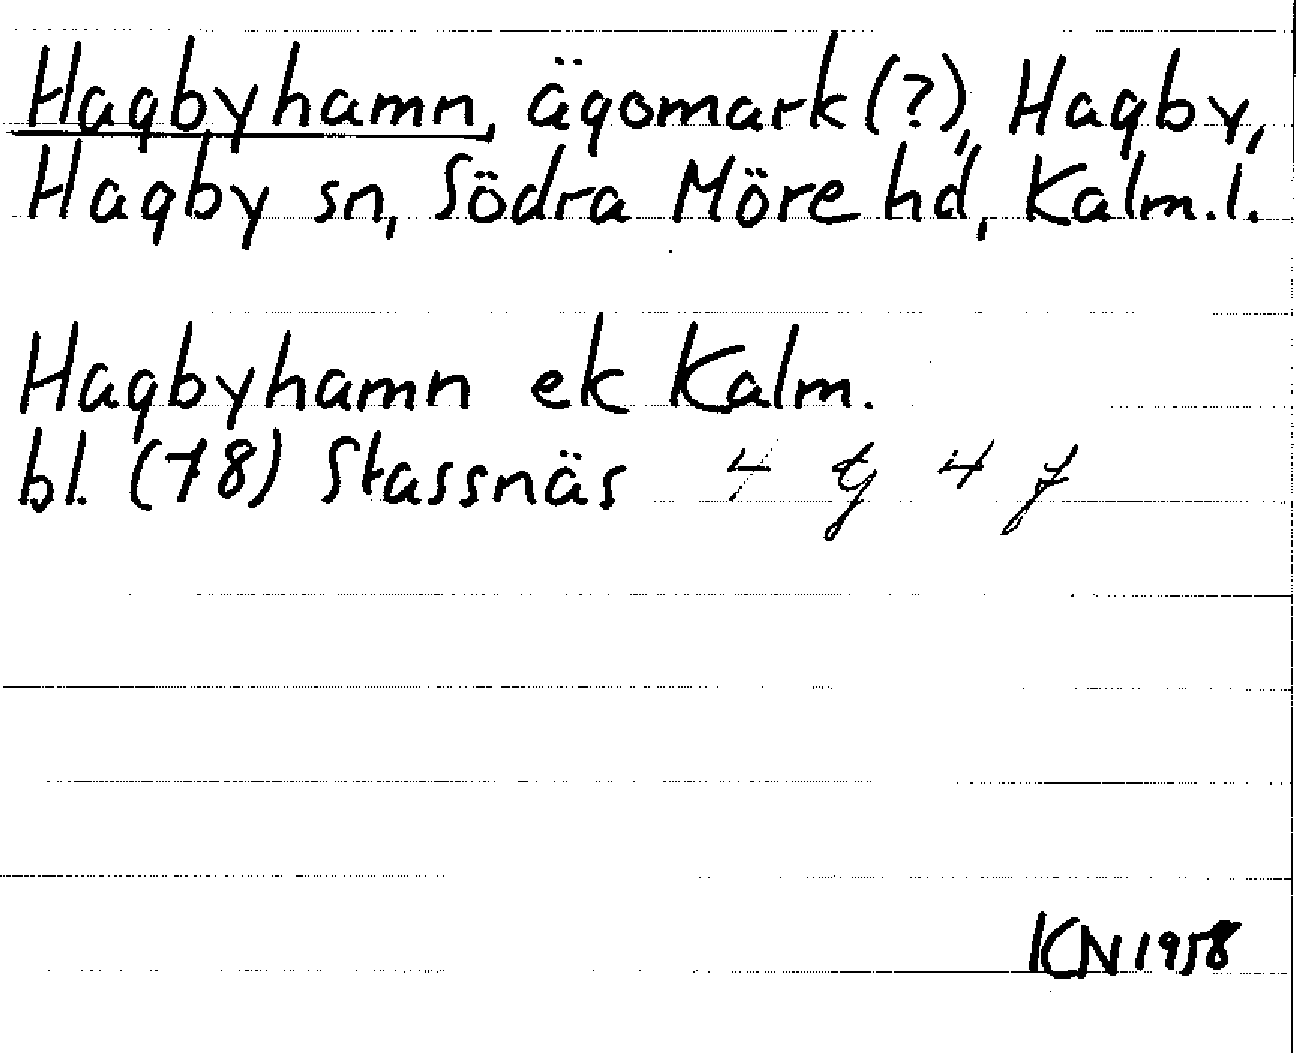 Hagbyhamn, ägomark (?), Hagby,
Hagby sn, Södra Möre hd, Kalm.l.
Hagbyhamn ek Kalm.
bl. (78) Stassnäs 4 G 4 f
KN 1958